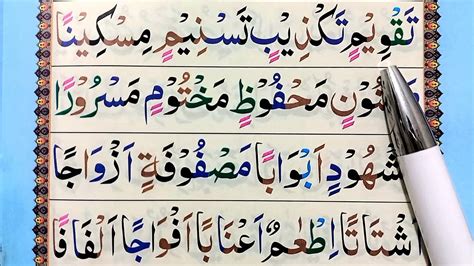 تَقْوِيمٍ تَكْذِيبٍ تَسْنِيمٍ مِسْكِينًا
مَحْفُوظٍ مَخْتُومٍ مَسْرُورًا
شُهُودٍ اَبْوَابًا مَصْفُوفَةٍ اَزْوَاجًا
اَشْتَاتًا اِطْعٰمٌ اَعْنَابًا اَفْوَاجًا اَلْفَافًا